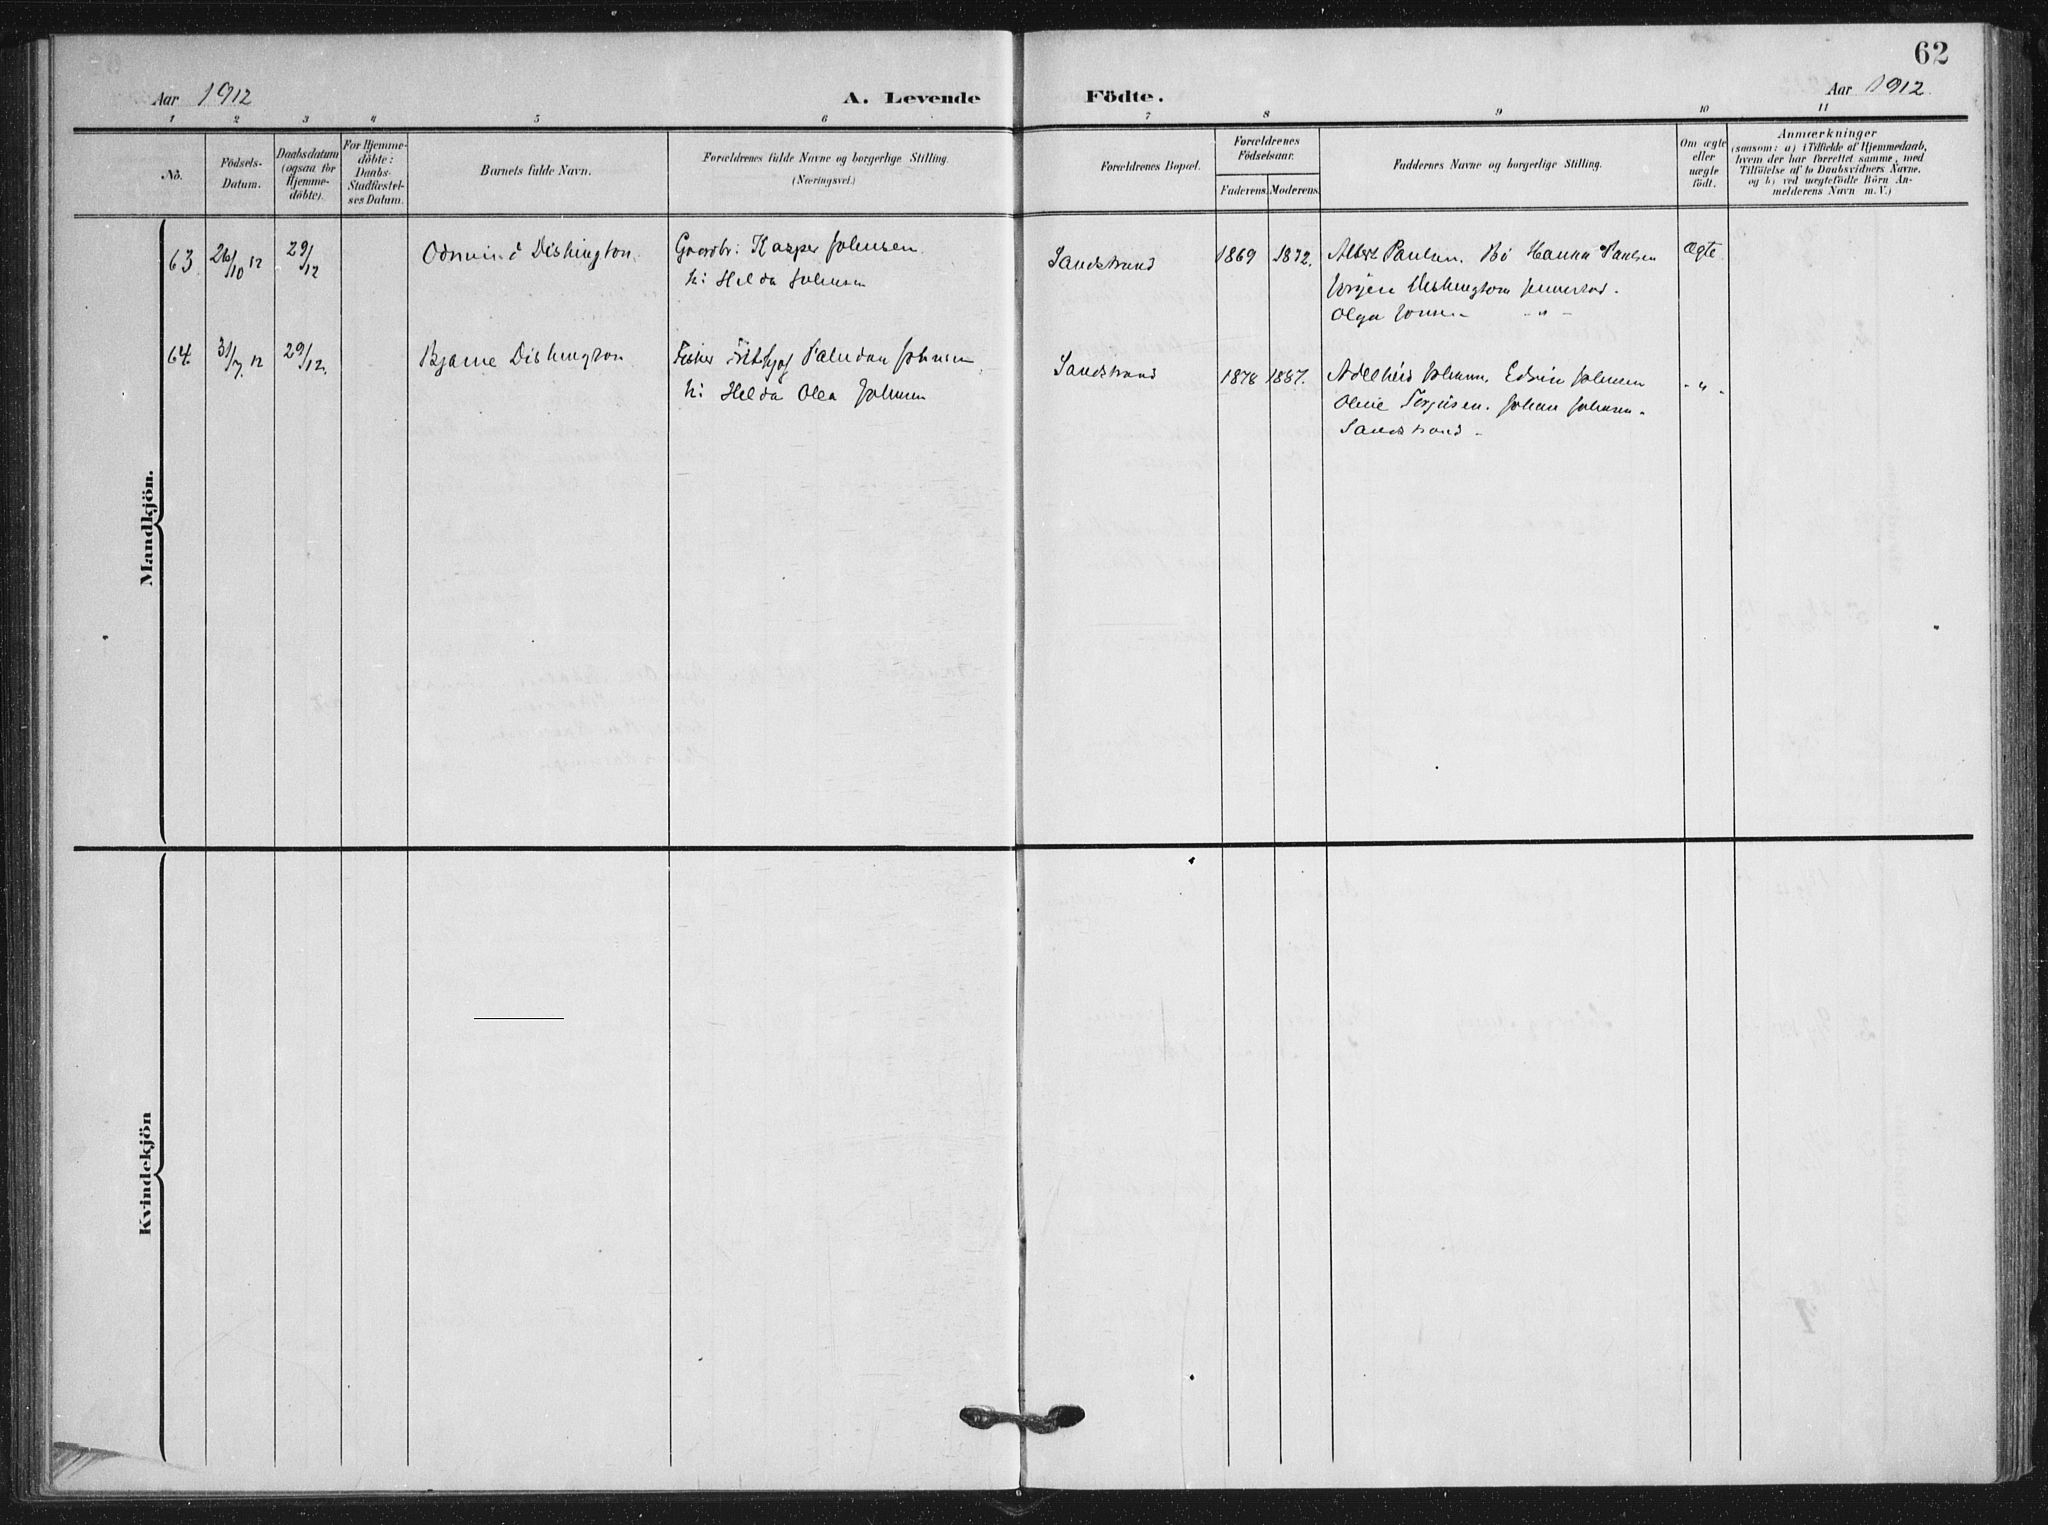 62
Aar 1912 A. Levende Födte. Aar 1912.
1 2 3 4 5 6 7 8 9 10 11
No.
Födsels-
Datum.
Daabsdatum
(ogsaa for
Hjemme-
döbte).
For Hjemme-
döbte:
Daabs-
Stadfæstel-
ses Datum.
Barnets fulde Navn.
Forældrenes fulde Navne og borgerlige Stilling.
(Næringsvei.)
Forældrenes Bopæl.
Forældrenes
Födselsaar.
Faderens. Moderens.
Faddernes Navne og borgerlige Stilling.
Om ægte
eller
uægte
födt.
Anmærkninger
(saasom: a) i Tilfælde af Hjemmedaab,
hvem der har forrettet samme, med
Tilföielse af to Daabsvidners Navne,
og b) ved uægtefödte Börn An-
melderens Navn m. V.)
Mandkjön.
63. 26/10 12 29/12 Odmund Dishington Gaardbr: Kasper Johnsen Sandstrand 1869 1872. Albert Paulsen. Bö Hanna Paulsen Ægte
h: Helda Johnsen Jörgen Dishington
Olga -"-
64. 31/7. 12 29/12. Bjarne Dishington Fisker Frithjof Paludan Johnsen Sandstrand 1878 1887. Adelheid Johnsen, Edvin Johnsen -"-
h: Helda Olea Johnsen Oline Torgersen. Johan Johnsen.
Sandstrand.
Kvindekjön